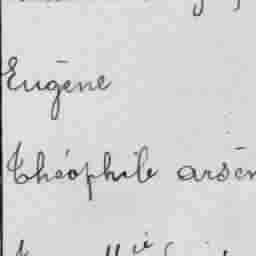 Eugène
Théophile arsèn